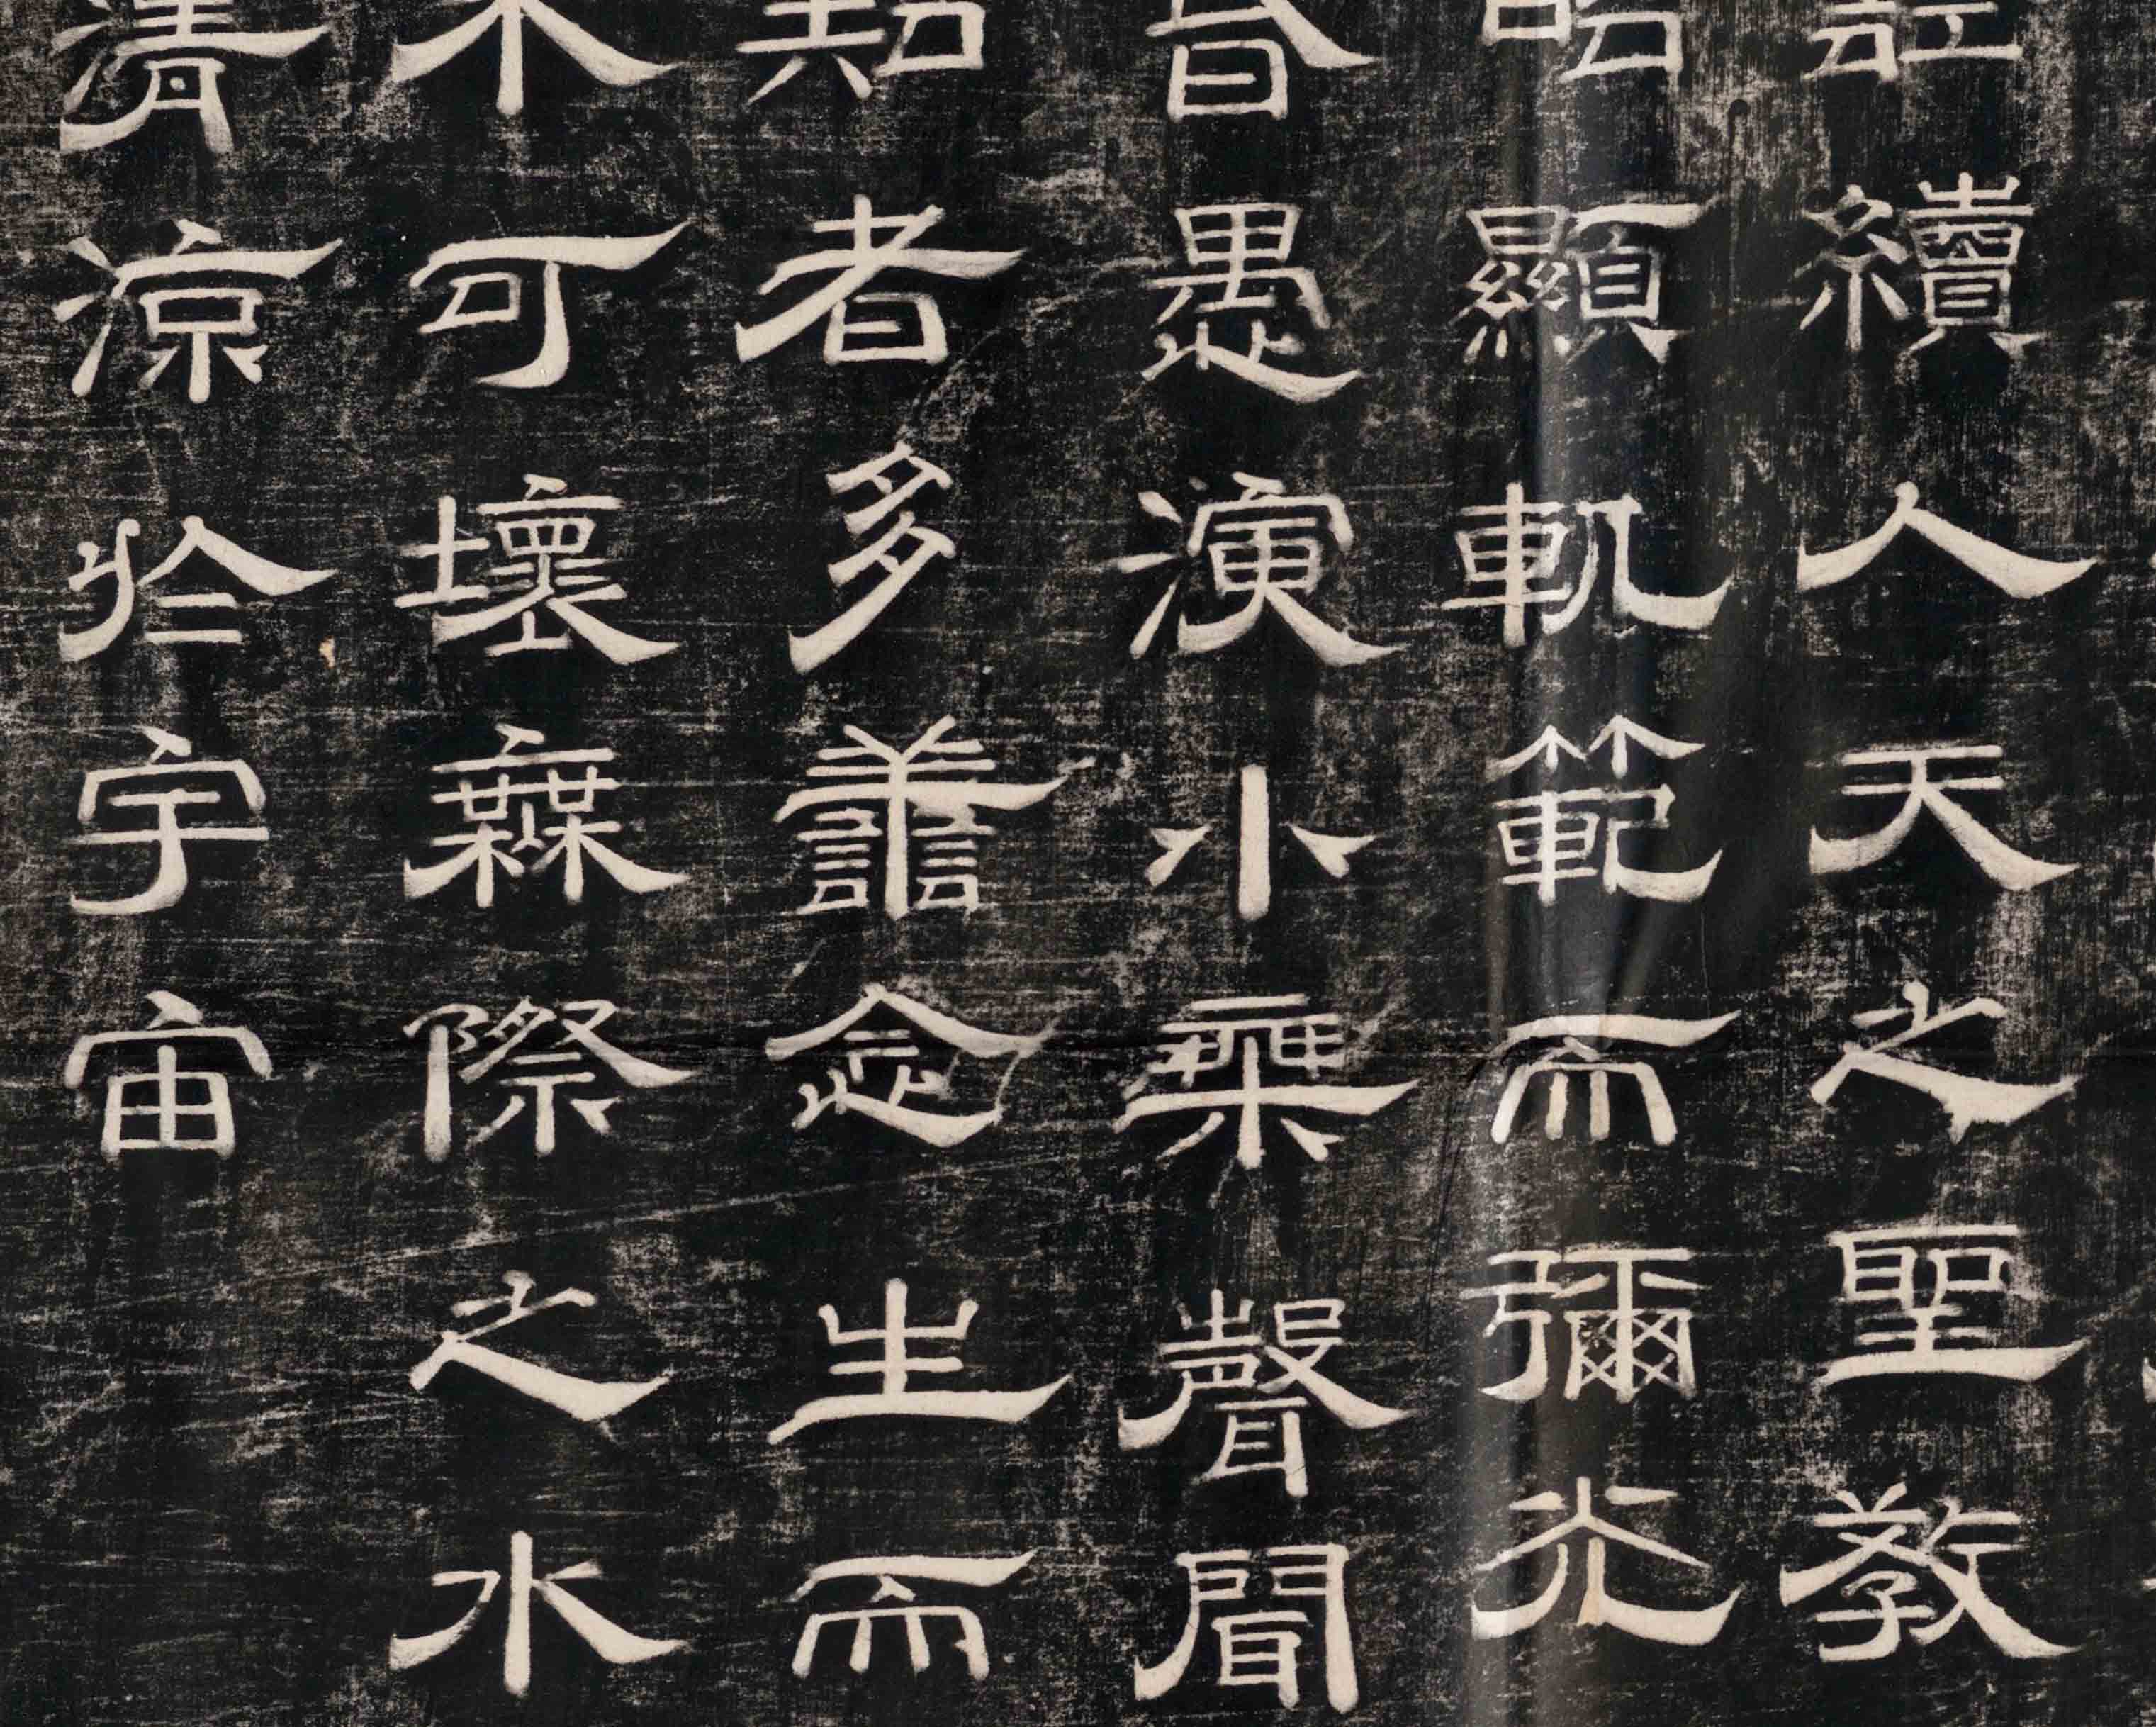 續人天之聖教
皓顯軌範而彌光
昏愚演小乘聲聞
契者多善念生而
木可壞無際之水
清涼於宇宙